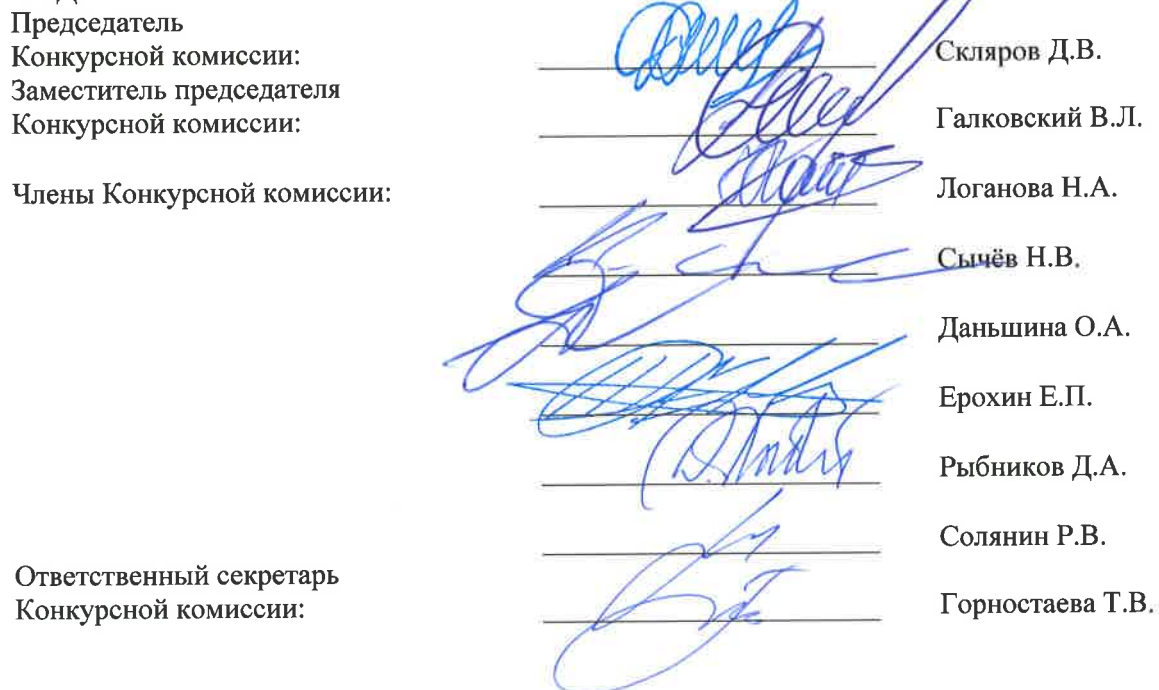 Председатель
Конкурсной комиссии: Скляров Д.В.
Заместитель председателя
Конкурсной комиссии: Галковский В.Л.
Члены Конкурсной комиссии: Логанова Н.А.
Сычёв Н.В.
Даньшина О.А.
Ерохин Е.П.
Рыбников Д.А.
Солянин Р.В.
Ответственный секретарь
Конкурсной комиссии: Горностаева Т.В.